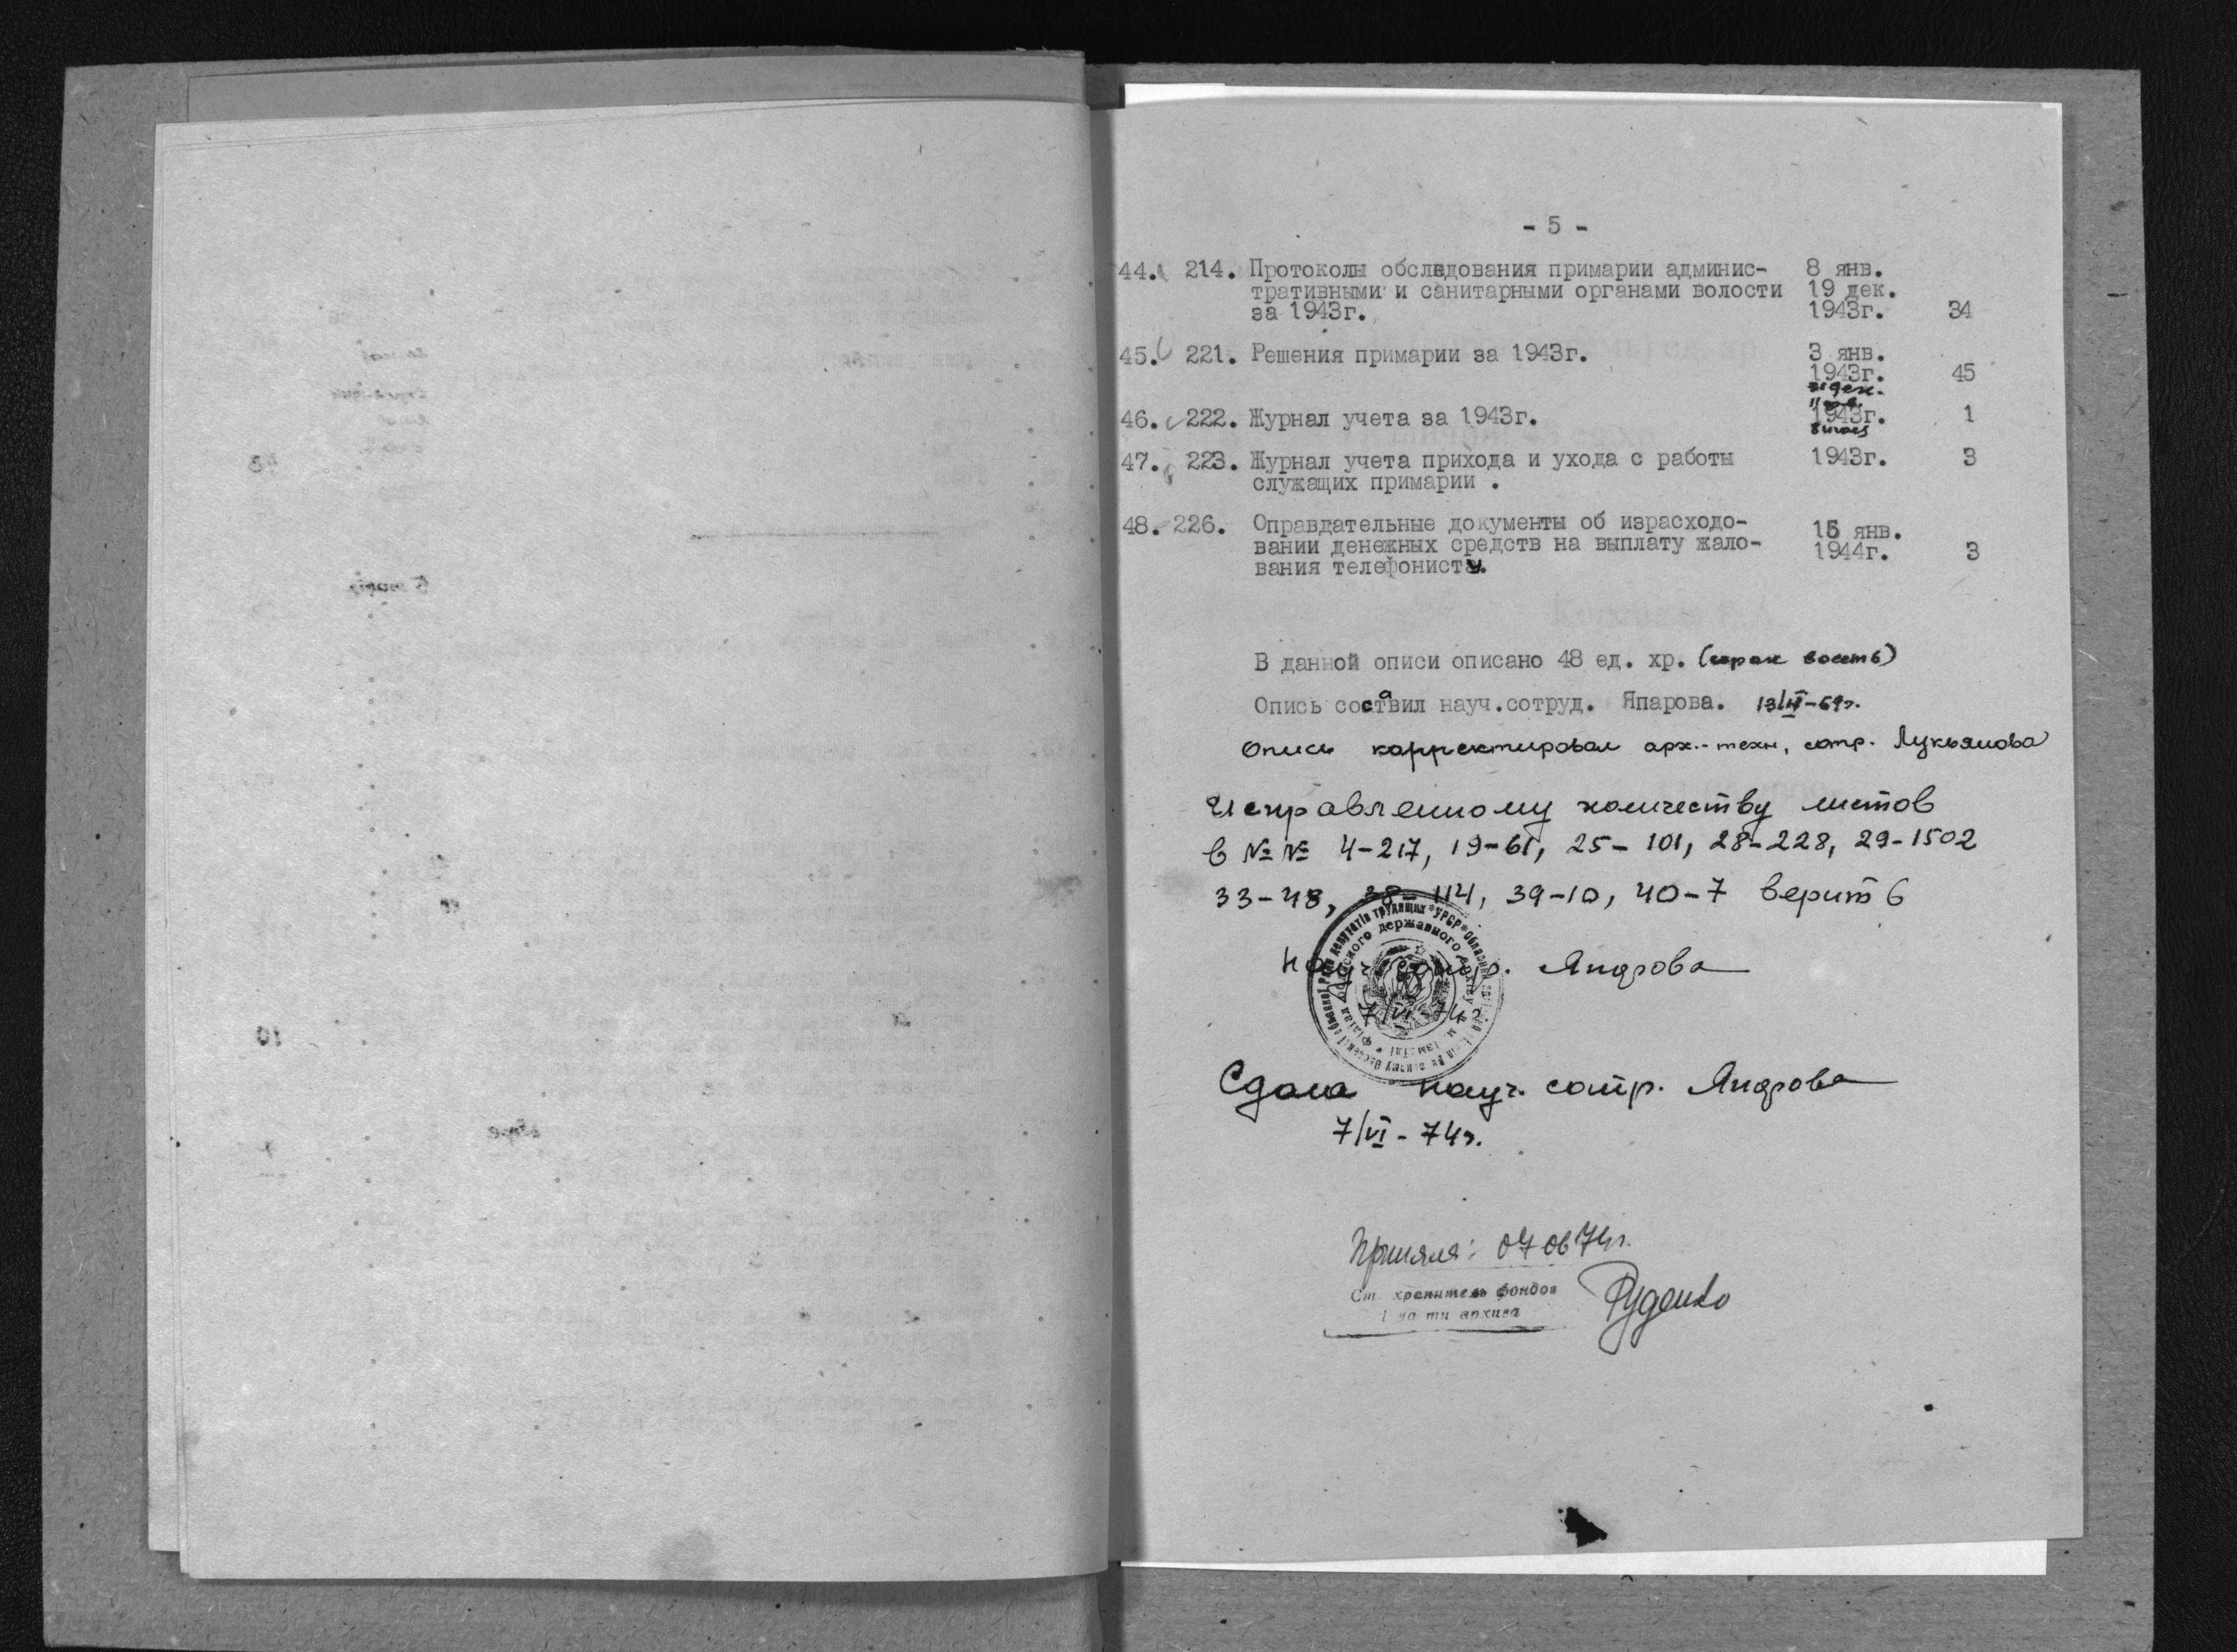 - 5 -
44. 214. Протоколы обследования примарии админис- 8 янв.
тративными и санитарными органами волости 19 дек.
за 1943г. 1943г. 34
45. 221. Решения примарии за 1943г. 3 янв.
1943г. 45
дек.
46. 222. Журнал учета за 1943г. 1943г. 1
47. 223. Журнал учета прихода и ухода с работы 1943г. 3
служащих примарии .
48. 226. Оправдательные документы об израсходо- 15 янв.
вании денежных средств на выплату жало- 1944г. 3
вания телефонисту.
В данной описи описано 48 ед. хр. (сорок восемь)
Опись составил науч.сотруд. Япарова. 13/ -69г.
Опись корректировал арх.-техн. сотр. Лукьянова
Исправленному количеству листов
в №№ 4-217, 19-61, 25-101, 28-228, 29-1502
33-48, 38-114, 39-10, 40-7 верить
Науч. сотр. Япарова
7/VI 74г.
Сдала науч. сотр. Япарова
7/VI - 74г.
Приняла: 07 06 74г.
Ст. хранитель фондов
части архива
Руденко